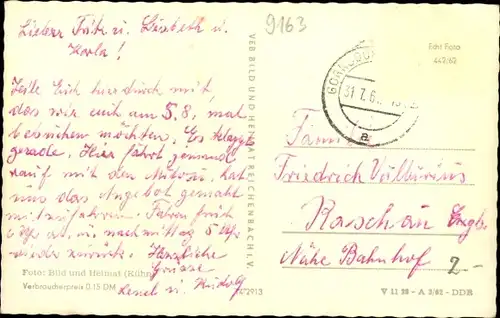 9163
Lieber Fritz u. Lisbeth u.
Karla!
Teile Euch hierdurch mit,
das wir euch am 5.8. mal
besuchen möchten. Es klappt
gerade. Hier fährt jemand
rauf mit den Mikrou. hat
uns das Angebot gemacht
mitzufahren. Fahren früh
6 Uhr ab, u. nachmittag 5 Uhr
wieder zurück. Herzliche
Grüsse
u. Rudolf
Foto: Bild und Heimat (Kühn)
Verbraucherpreis 0.15 DM
472913
VEB BILD UND HEIMAT REICHENBACH I. V.
Echt Foto
442/62
31.7.6
a
Familie
Friedrich
Raschau Erzgb.
Nähe Bahnhof
2-
V 11 28 - A 2/62 - DDR